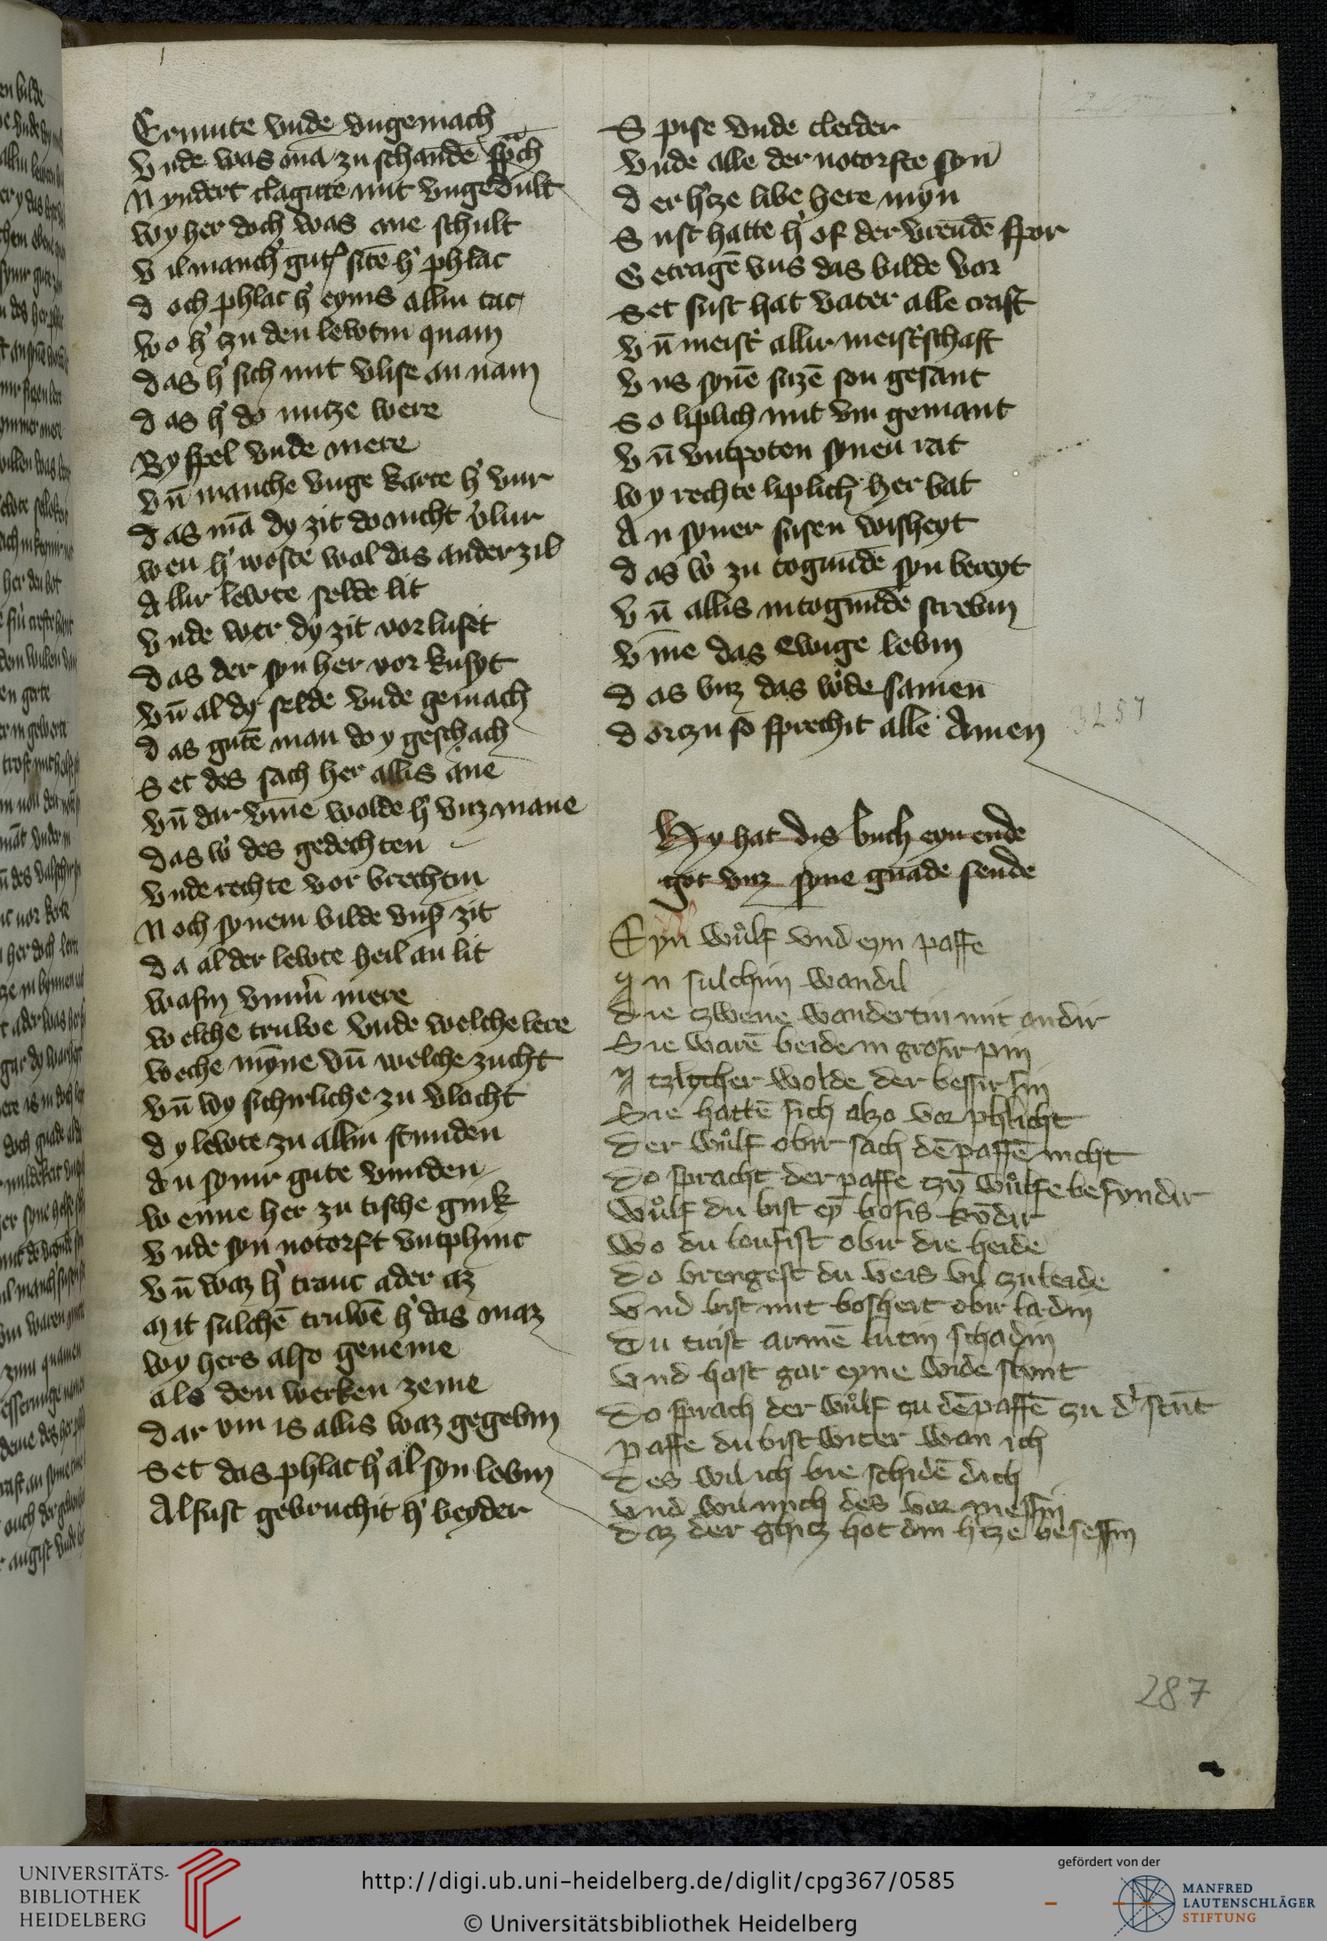 Ermute vnde vngemach
Vnde was mā zu schandē sp̄ch
Nyndert clagute mit vngedult
Wy her doch was ane schult
Vil manch gut sitē h' phlac
Doch phlac h' eyns allin tac
Wo h' czu den lewtin quam
Das h' sich mit vlise an nam
Das h' do nutze were
Byspel vnde mere
Vn̄ manche vuge karte h' vur
Das mā dy zit do nicht v'lur
Wen h' woste wol das an der zit
Allir lewte selde lit
Vnde wer dy zit vorluset
Das der syn her vorkusyt
Vn̄ al dy selde vnde gemach
Das gutē man do y geschach
Set des sach her allis ane
Vn̄ dar vm̄e wolde h' vnz mane
Das w' des gedechten
Vnde rechte vorbrechtin
Noch synem bilde vns' zit
Da al der lewte heil an lit
Wafin vmm' mere
Welche truwe vnde welche lere
Weche mȳne vn̄ welche zucht
Vn̄ wy sichirliche zu vlucht
Dy lewte zu allin stunden
An synir gute vunden
Wenne her zu tische gink
Vnde syn notorft vntphinc
Vn̄ waz h' tranc ader az
Mit sulchē truwē h' das maz
Wy hers also geneme
Als den werken zeme
Dar vm is allis waz gegebin
Set das phlac h' al syn lebin
Alsust gebruchit h' beyder
Spise vnde cleider
Vnde alle der notorfte syn
Der h'tze libe here myn
Sust hatte h' of der vrendē spor
Getragē vns das bilde vor
Set sust hat vater alle craft
Vn̄ meist' allir meist'schaft
Vns synē suzē son gesant
So liplich mit vm gemant
Vn̄ vntpoten synen rat
Wy rechte liplich her bat
An syner susen wisheyt
Das w' zu togundē syn bereyt
Vn̄ allis in togundē strebin
Vm̄e das ewige lebin
Das vnz das w'de samen
Dorczu so sprechit alle Amen
3257
Hy hat dis buch eyn ende
got vnz syne gnade sende
Eyn wulf vnd eyn paffe
In sulchin wandil
Die tzwene wandertin mit andir
Sie warē beide in grosir pin
Itzlicher wolde der bessir sin
Sie hattē sich alzo vor phlicht
Der wulf obir sach dē paffē nicht
Do spracht der paffe tzū wulfe besyndir
Wulf du bist eȳ bosis kōdir
Wo du loufist obir die heide
Do brengest du veis vil zu leide
Vnd bist mit bosheit obir ladin
Du tuist armē lutin schadin
Vnd hast gar eyne wide slvnt
Do sprach der wulf zu dē paffē zu d' stūt
Paffe du bist witer wan ich
Des wil ich bie schidē dich
Vnd wil mich des vor messin
Daz der ghitz hot din h'tze besessin
287
UNIVERSITÄTS-
BIBLIOTHEK
HEIDELBERG
http://digi.ub.uni-heidelberg.de/diglit/cpg367/0585
© Universitätsbibliothek Heidelberg
gefördert von der
MANFRED
LAUTENSCHLÄGER
STIFTUNG